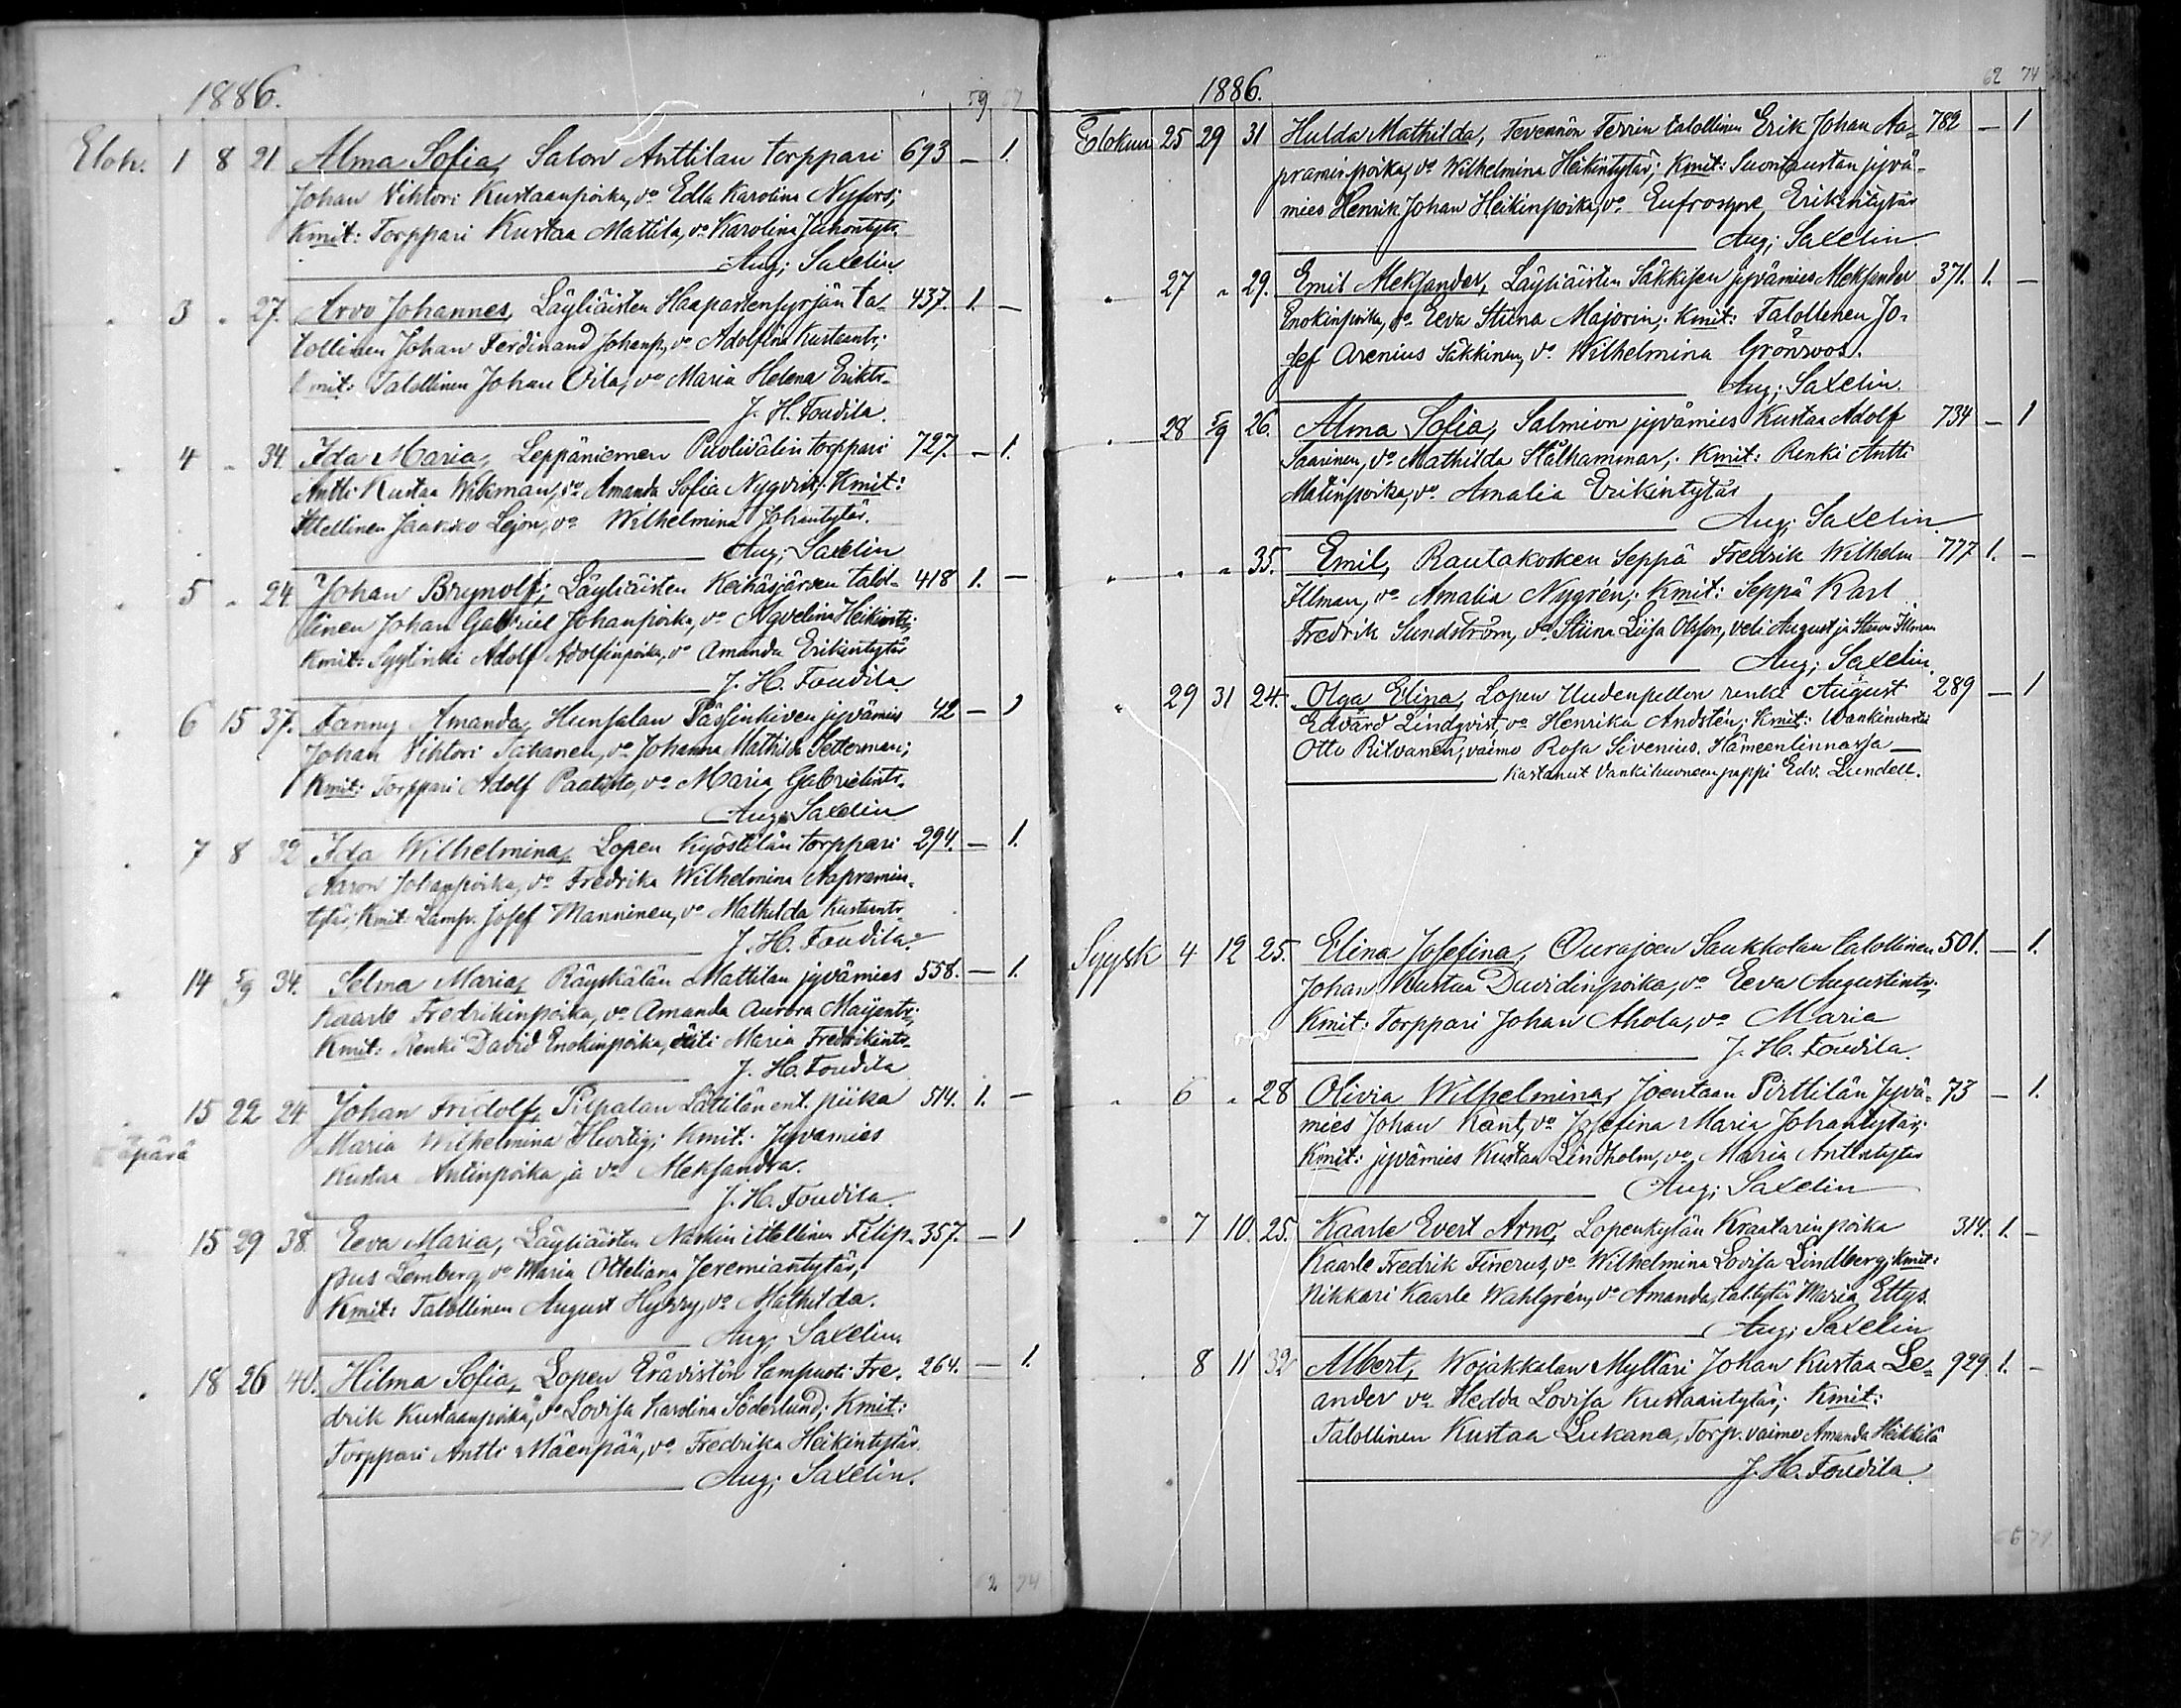 1886.
59 57
Elok. 1 8 21 Alma Sofia, Salon Anttilan torppari 693 — 1.
Johan Vihtori Kustaanpoika, vo Edla Karolina Nyfors;
Kmit: Torppari Kustaa Mattila, vo Karolina Juhontytr.
Aug; Saxelin
" 3 " 27. Arvo Johannes, Läyliäisten Haapastensyrjän ta- 437. 1. —
lollinen Johan Ferdinand Johanp., vo Adolfina Kustaantr;
Kmit: Talollinen Johan Oila, vo Maria Helena Eriktr.
J. H. Foudila.
" 4 " 34. Ida Maria, Leppäniemen Puolivälin torppari 727. — 1.
Antti Kustaa Wikman, vo Amanda Sofia Nyqvist; Kmit:
Ittellinen Jaakko Lejon, vo Wilhelmina Johantytär.
Aug; Saxelin
" 5 " 24. Johan Brynolf; Läyliäisten Keihäsjärven talol- 418 1. —
linen Johan Gabriel Johanpoika, vo Agvelina Heikintr;
Kmit: Syytinki Adolf Adolfinpoika, vo Amanda Erikintytär
J. H. Foudila
" 6 15 37. Fanny Amanda, Hunsalan Pässinkiven jyvämies 42 — 1
Johan Vihtori Tähänen, vo Johanna Mathilda Setterman;
Kmit: Torppari Adolf Paatisto, vo Maria Gabrielintr.
Aug; Saxelin
" 7 8 32 Ida Wilhelmina, Lopen Kyöstilän torppari 294. — 1.
Aaron Johanpoika, vo Fredrika Wilhelmina Aapramin-
tytär; Kmit: Lamp. Josef Manninen, vo Mathilda Kustantr.
J. H. Foudila.
" 14 5/9 34. Selma Maria, Räyskälän Mattilan jyvämies 558. — 1.
Kaarle Fredrikinpoika, vo Amanda Aurora Maijentr;
Kmit: Renki David Enokinpoika, äiti Maria Fredrikintr.
J. H. Foudila
" 15 22 24 Johan Fridolf, Pilpalan Lättilän ent. piika 514. 1. —
Äpärä Maria Wilhelmina Hurtig; Kmit: Jyvämies
Kustaa Antinpoika ja vo Aleksandra.
J. H. Foudila
15 29 38 Eeva Maria, Läyliäisten Naskin ittellinen Filip- 357. — 1
pus Lemberg vo Maria Otteliana Jeremiantytär;
Kmit: Talollinen August Hyrry, vo Mathilda.
Aug; Saxelin
" 18 26 40. Hilma Sofia, Lopen Erävistön lampuoti Fre- 264. — 1.
drik Kustaanpoika, vo Lovisa Karolina Söderlund; Kmit:
Torppari Antti Mäenpää, vo Fredrika Heikintytär
Aug; Saxelin.
2 74
1886.
62 74
Elokuu 25 29 31 Hulda Mathilda, Tevännön Terrin talollinen Erik Johan Aa- 782 — 1
praminpoika, vo Wilhelmina Heikintytär; Kmit: Suontaustan jyvä-
mies Henrik Johan Heikinpoika, vo Eufrosyne Erikintytär
Aug; Saxelin
" 27 " 29. Emil Aleksander, Läyliäisten Säkkisen jyvämies Aleksander 371. 1. —
Enokinpoika, vo Eeva Stiina Majorin; Kmit: Talollinen Jo-
sef Arenius Säkkinen, vo Wilhelmina Grönroos.
Aug; Saxelin.
" 28 5/9 26. Alma Sofia, Salmion jyvämies Kustaa Adolf 734 — 1
Saarinen, vo Mathilda Stålhammar; Kmit: Renki Antti
Matinpoika, vo Amalia Erikintytär
Aug; Saxelin
" " " 35. Emil, Rautakosken Seppä Fredrik Wilhelm 777 1. —
Illman, vo Amalia Nygrén; Kmit: Seppä Karl
Fredrik Sundström, vo Stiina Liisa Olsson, veli August ja Illman
Aug; Saxelin
" 29 31 24. Olga Elina, Lopen Uudenpellon renki August 289 — 1
Edvard Lindqvist, vo Henrika Andstén; Kmit: Wankinvartia
Otto Ritvanen, vaimo Rosa Sivenius. Hämeenlinnassa —
Kastanut Vankihuoneen pappi Edv. Lundell.
Syysk 4 12 25. Elina Josefina, Ourajoen Saukkolan talollinen 501. — 1.
Johan Kustaa Davidinpoika, vo Eeva Augustintr;
Kmit: Torppari Johan Ahola, vo Maria
J. H. Foudila.
" 6 " 28 Olivia Wilhelmina, Joentaan Pirttilän Jyvä- 73 — 1.
mies Johan Kant, vo Josefina Maria Johantytär;
Kmit: jyvämies Kustaa Lindholm, vo Maria Antintytär
Aug; Saxelin
" 7 10. 25. Kaarle Evert Arno, Lopenkylän Kraatarinpoika 314. 1. —
Kaarle Fredrik Finerus, vo Wilhelmina Lovisa Lindberg; Kmit:
Nikkari Kaarle Wahlgrén, vo Amanda, tal. tytär Maria Ettys.
Aug; Saxelin
" 8 11 32 Albert, Wojakkalan Mylläri Johan Kustaa Le- 929. 1. —
ander vo Hedda Lovisa Kustaantytär; Kmit:
Talollinen Kustaa Lukana, Torp. vaimo Amanda Heikkilä
J. H. Foudila.